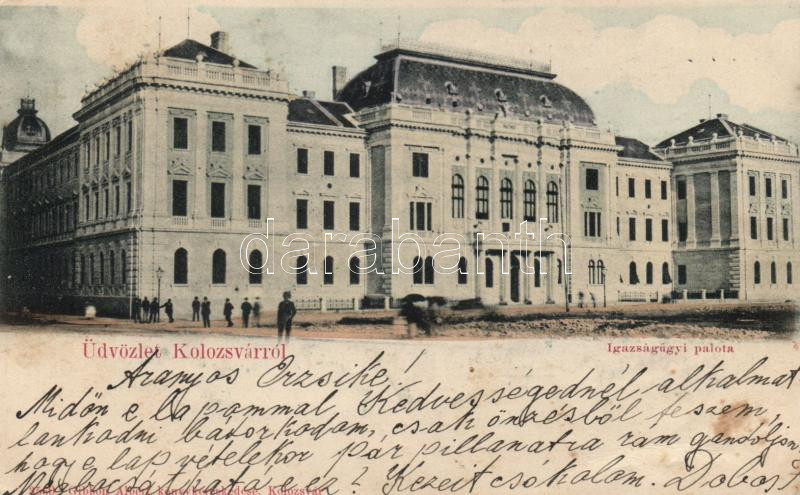 darabanth.com
Üdvözlet Kolozsvárról
Igazságügyi palota
Aranyos Erzsike!
Midőn e lapommal Kedvességednél alkalmat
lankodni bátorkodom, csak önzésből teszem,
hogy e lap vételekor pár pillanatra rám gondoljon
Megbocsát rata e ez? Kezeit csókolom. Dobos
Gibbon Albert könyvkereskedése, Kolozsvár